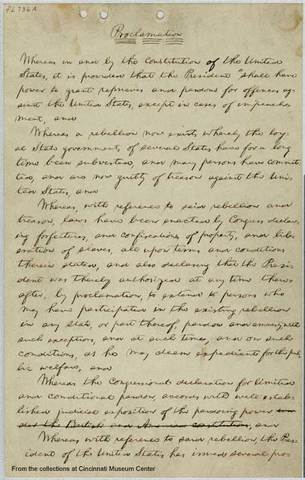 Proclamation
Whereas in and by the Constitution of the United
States, it is provided that the President "shall have
power to grant reprieves and pardons for offences ag-
ainst the United States, except in cases of impeach-
ment, and
Whereas a rebellion now exists whereby the loy-
al State governments of several States have for a long
time been subverted, and many persons have commit-
ted, and are now guilty of treason against the Uni-
ted States, and
Whereas, with reference to said rebellion and
treason, laws have been enacted by Congress declar-
ing forfeitures, and confiscations of property, and lib-
eration of slaves, all upon terms and conditions
therein stated, and also declaring that the Presi-
dent was thereby authorized at any time there-
after, by proclamation, to extend to persons who
may have participated in the existing rebellion
in any State, or part thereof, pardon and amnesty, with
such exceptions, and at such times, and on such
conditions, as he may deem expedient for the pub-
lic welfare, and
Whereas the Congressional declaration for limited
and conditional pardon, accords with well estab-
lished judicial exposition of the pardoning power
and
Whereas with reference to said rebellion, the Pres-
ident of the United States has issued several pro-
From the collections at Cincinnati Museum Center